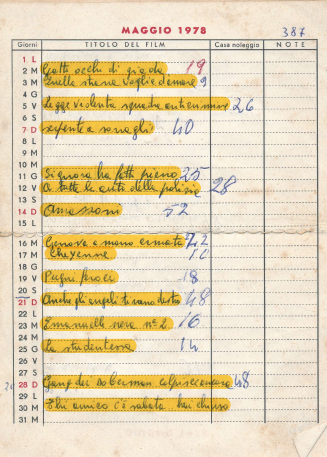 387
MAGGIO 1978
Giorni TITOLO DEL FILM Case noleggio NOTE
1 L
2 M Gatti occhi di giada 19
3 M Quella strana voglia d'amare 9
4 G
5 V Legge violenta squadra anticrimine 26
6 S
7 D serpente a sonagli 40
8 L
9 M
10 M
11 G Signora ha fatto pieno 25
12 V A tutte le auto della polizia 28
13 S
14 D Amazzoni 52
15 L
16 M Genova a mano armata 22
17 M Cheyenne 10
18 G
19 V Pugni feroci 18
20 S
21 D Anche gli angeli tirano destro 48
22 L
23 M Emanuelle nera n° 2 16
24 M
25 G La studentessa 14
26 V
27 S
28 D Gang dei Doberman colpisce ancora 48
29 L
30 M Ehi amico c'è sabata hai chiuso
31 M